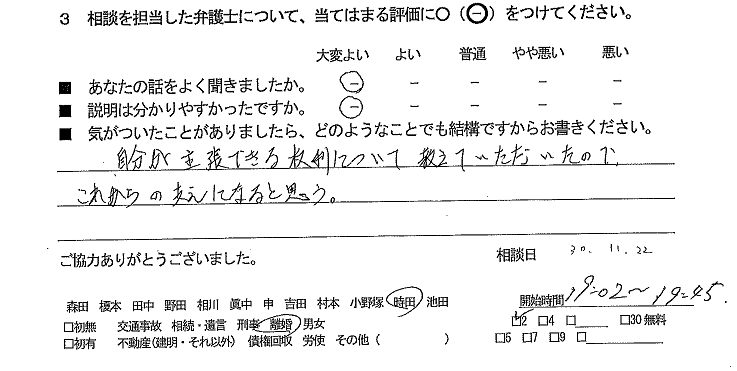 3 相談を担当した弁護士について、当てはまる評価に○(⊖)をつけてください。
大変よい よい 普通 やや悪い 悪い
■ あなたの話をよく聞きましたか。 － － － － －
■ 説明は分かりやすかったですか。 － － － － －
■ 気がついたことがありましたら、どのようなことでも結構ですからお書きください。
自分が主張できる権利について教えていただいたので、
これからの支えになると思う。
ご協力ありがとうございました。 相談日 30. 11. 22
森田 榎本 田中 野田 相川 眞中 申 吉田 村本 小野塚 時田 池田 開始時間 19:02～19:45
□初無 交通事故 相続・遺言 刑事 離婚 男女 □2 □4 □ □30無料
□初有 不動産(建明・それ以外) 債権回収 労使 その他( ) □5 □7 □9 □